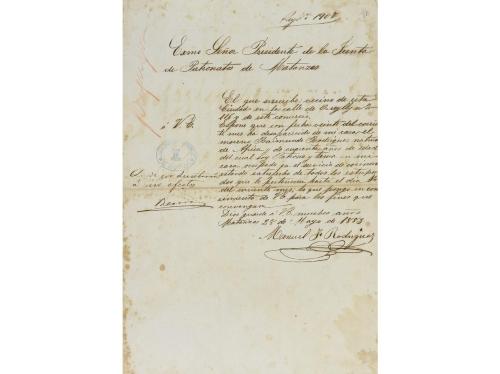 1908
Exmo Señor Presidente de la Junta
de Patronatos de Matanzas
El que suscribe vecino de esta
Ciudad en la calle de
de este comercio.
á V. E.
Espone que con fecha veinte del corrien
te mes ha desaparecido de mi casa el
moreno Raimundo Rodriguez natural
de Africa, de cuarenta años de edad
del cual soy Patrono y tenia en mi
casa al servicio de cocinero
estando satisfecho de todos los estipen
dios que le pertenecen hasta el dia
del corriente mes, lo que pongo en cono
cimiento de V.E. para los fines que
convengan.
Dios guarde á V.E. muchos años
Matanzas 25 de Mayo de 1883
Manuel F Rodriguez
á sus efectos